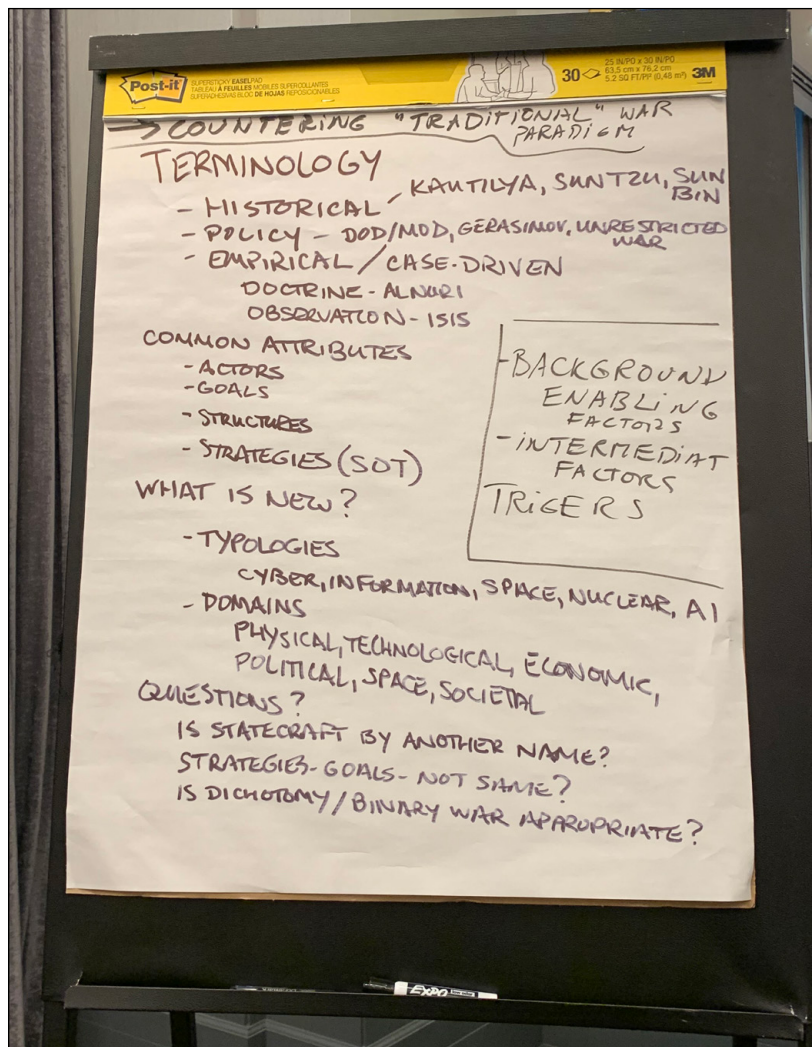 Post-it
SUPERSTICKY EASEL PAD
TABLEAU À FEUILLES MOBILES SUPERCOLLANTES
SUPERADHESIVAS BLOC DE HOJAS REPOSICIONABLES
30
25 IN/PO x 30 IN/PO
63,5 cm x 76,2 cm
5.2 SQ FT/PI² (0,48 m²)
3M
→ COUNTERING "TRADITIONAL" WAR
PARADIGM
TERMINOLOGY
- HISTORICAL - KAUTILYA, SUN TZU, SUN
BIN
- POLICY - DOD/MOD, GERASIMOV, UNRESTRICTED
WAR
- EMPIRICAL / CASE-DRIVEN
DOCTRINE - ALNURI
OBSERVATION - ISIS
COMMON ATTRIBUTES
- ACTORS
- GOALS
- STRUCTURES
- STRATEGIES (SOT)
- BACKGROUND
ENABLING
FACTORS
- INTERMEDIAT
FACTORS
TRIGERS
WHAT IS NEW?
- TYPOLOGIES
CYBER, INFORMATION, SPACE, NUCLEAR, AI
- DOMAINS
PHYSICAL, TECHNOLOGICAL, ECONOMIC,
POLITICAL, SPACE, SOCIETAL
QUESTIONS?
IS STATECRAFT BY ANOTHER NAME?
STRATEGIES - GOALS - NOT SAME?
IS DICHOTOMY / BINARY WAR APPROPRIATE?
EXPO